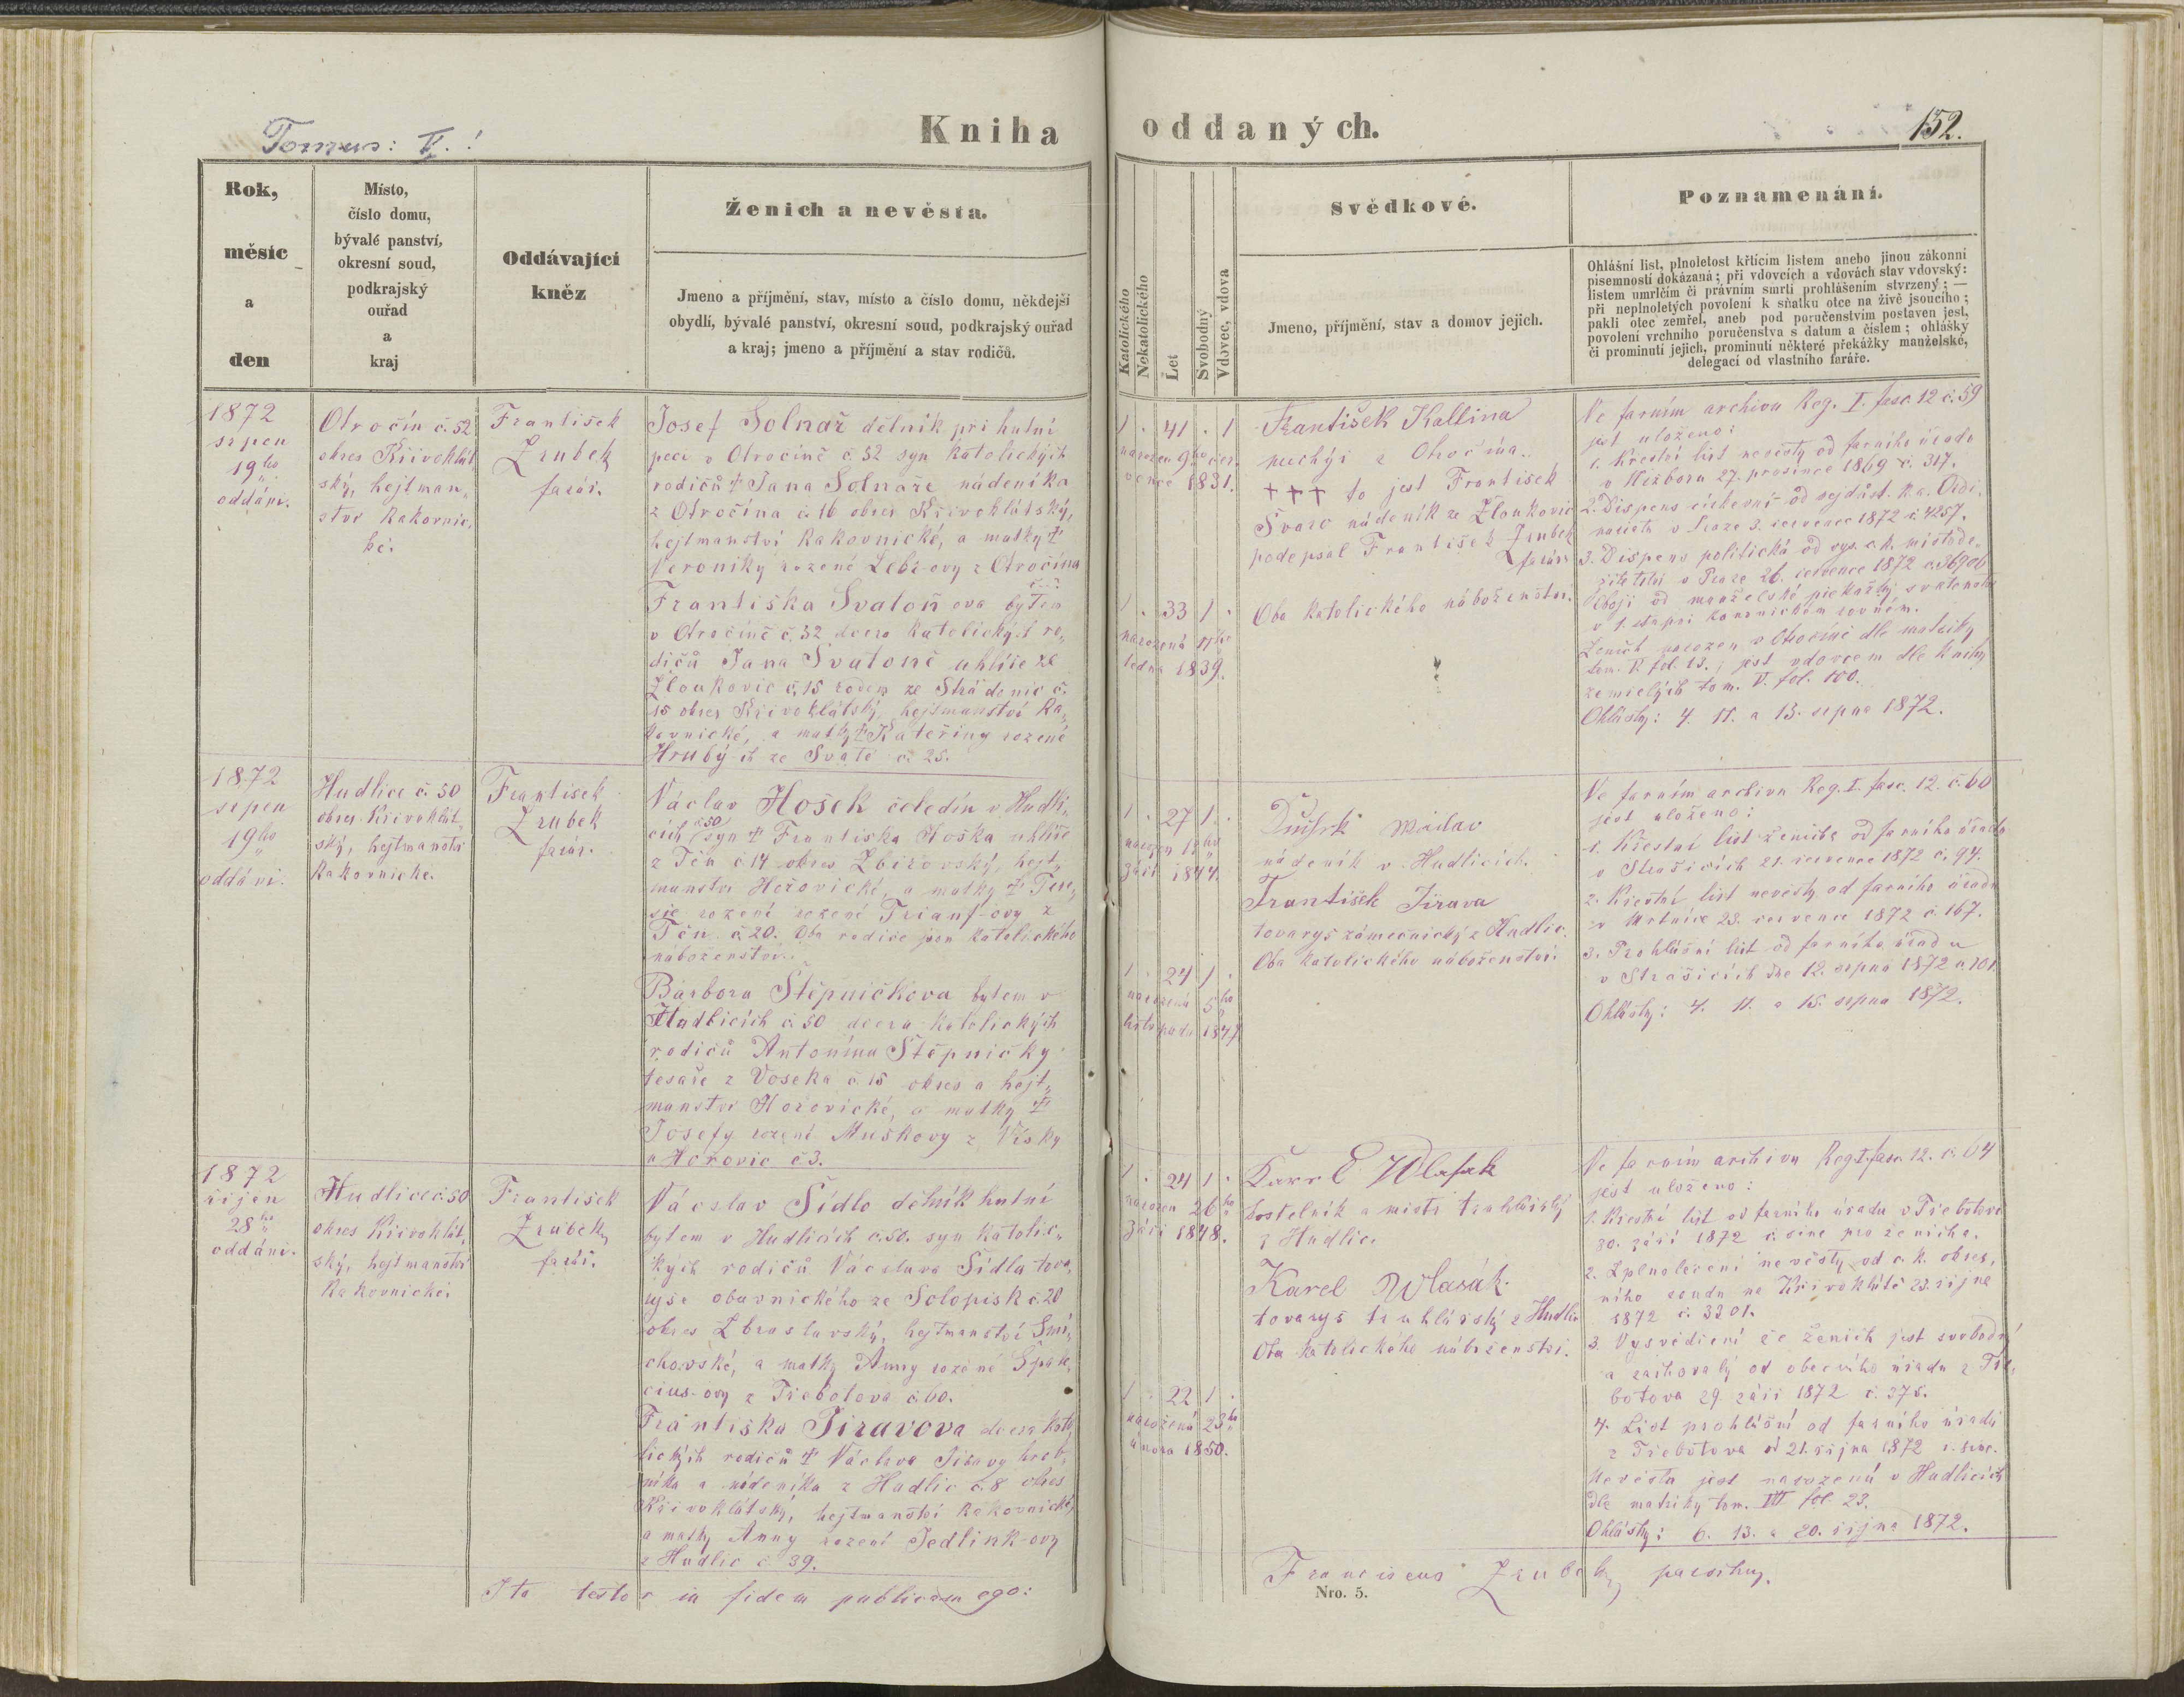 Tomus: V.
Kniha oddaných.
152.
Rok,
měsíc
a
den
Místo,
číslo domu,
bývalé panství,
okresní soud,
podkrajský
ouřad
a
kraj
Oddávající
kněz
Ženich a nevěsta.
Jmeno a příjmění, stav, místo a číslo domu, někdejší
obydlí, bývalé panství, okresní soud, podkrajský ouřad
a kraj; jmeno a příjmění a stav rodičů.
Katolického
Nekatolického
Let
Svobodný
Vdovec, vdova
Svědkové.
Jmeno, příjmění, stav a domov jejich.
Poznamenání.
Ohlášní list, plnoletost křtícím listem anebo jinou zákonní
písemností dokázaná; při vdovcích a vdovách stav vdovský:
listem umrlčím či právním smrti prohlášením stvrzený; —
při neplnoletých povolení k sňatku otce na živě jsoucího;
pakli otec zemřel, aneb pod poručenstvím postaven jest,
povolení vrchního poručenstva s datum a číslem; ohlášky
či prominutí jejich, prominutí některé překážky manželské,
delegací od vlastního faráře.
1872
srpen
19ho
oddáni.
Otročín č. 52
okres Křivoklát
ský, hejtman„
ství Rakovnic„
ké.
František
Zrubek
farář.
Josef Solnař dělník při hutní
peci v Otročíně č. 52 syn katolických
rodičů † Jana Solnaře nádeníka
z Otročína č. 16 okres Křivoklátský,
hejtmanství Rakovnické, a matky †
Veroniky rozené Lebr-ovy z Otročína
Františka Svatoň ova bytem
v Otročíně č. 52 dcera katolických ro„
dičů Jana Svatoně uhlíře ze
Žloukovic č. 15 rodem ze Strádonic č.
15 okres Křivoklátský, hejtmanství Ra„
kovnické, a matky † Kateřiny rozené
Hrubý-ch ze Svaté č. 25.
1 . 41 . 1
narozen 9ho čer„
vence 1831.
1 . 33 1 .
narozená 17ho
ledna 1839.
František Kallina
puchýř z Otročína.
+++ to jest František
Švarc nádeník ze Žloukovic
podepsal František Zrubek
farář
Oba katolického náboženství.
Ve farním archivu Reg. I. fasc. 12 č. 59
jest uloženo:
1. Křestní list nevěsty od farního úřadu
v Nižboru 27. prosince 1869 č. 317.
2. Dispens církevní od nejdůst. kn. Ordi„
nariátu v Praze 3. července 1872 č. 4257.
3. Dispens politická od vys. c. k. místodr„
žitelství v Praze 26. července 1872 č. 36906
Obojí od manželské překážky svatovství
v 1. stupni kanonickém rovném.
Ženich narozen v Otročíně dle matriky
tom. V. fol. 13., jest vdovcem dle knihy
zemřelých tom. V. fol. 100.
Ohlášky: 4. 11. a 15. srpna 1872.
1872
srpen
19ho
oddáni.
Hudlice č. 50
okres Křivoklát„
ský, hejtmanství
Rakovnické.
František
Zrubek
farář.
Václav Hošek čeledín v Hudli„
cích č 50 syn † Františka Hoška uhlíře
z Těn č. 14 okres Zbirovský, hejt„
manství Hořovické, a matky † Tere„
sie rozené rozené Trianf-ovy z
Těn č. 20. Oba rodiče jsou katolického
náboženství.
Barbora Štěpničkova bytem v
Hudlicích č. 50 dcera katolických
rodičů Antonína Štěpničky
tesaře z Voseka č. 15 okres a hejt„
manství Hořovické, a matky †
Josefy rozené Muškovy z Vísky
u Hořovic č 3.
1 . 27 1 .
narozen 12ho
září 1844.
1 . 24 1 .
narozená 5ho
listopadu 1847
Václav
nádeník v Hudlicích.
František Jírava
tovaryš zámečnický z Hudlic.
Oba katolického náboženství.
Ve farním archivu Reg. I. fasc. 12. č. 60
jest uloženo:
1. Křestní list ženicha od farního úřadu
v Strašicích 21. července 1872 č. 94.
2. Křestní list nevěsty od farního úřadu
v Mrtníce 23. července 1872 č. 167.
3. Prohlášní list od farního úřadu
v Strašicích dne 12. srpna 1872 č. 101
Ohlášky: 4. 11. a 15. srpna 1872.
1872
říjen
28ho
oddáni.
Hudlice č. 50
okres Křivoklát„
ský, hejtmanství
Rakovnické.
František
Zrubek
farář.
Václav Šídlo dělník hutní
bytem v Hudlicích č. 50. syn katolic„
kých rodičů Václava Šídla tova„
ryše obuvnického ze Solopisk č. 20
okres Zbraslavský, hejtmanství Smí„
chovské, a matky Anny rozené Špa
cius-ovy z Třebotova č. 60.
Františka Jiravova dcera kato„
lických rodičů † Václava Jíravy hrob„
níka a nádeníka z Hudlic č. 8 okres
Křivoklátský, hejtmanství Rakovnické,
a matky Anny rozené Jedlink-ovy
z Hudlic č 39.
1 . 24 1 .
narozen 26ho
září 1848.
1 . 22 1 .
narozená 23ho
února 1850.
Karel Wlasak
kostelník a mistr truhlářský
z Hudlic.
Karel Wlasák.
tovaryš truhlářský z Hudlic
Oba katolického náboženství.
Ve farním archivu Reg. I. fasc. 12. č. 64
jest uloženo:
1. Křestní list od farního úřadu v Třebotově
30. září 1872 č. sine pro ženicha.
2. Zplnoletení nevěsty od c. k. okres„
ního soudu na Křivoklátě 23. října
1872 č. 3301.
3. Vysvědčení že ženich jest svobodný
a zachovalý od obecního úřadu z Tře„
botova 29. září 1872 č. 375.
4. List prohlášní od farního úřadu
z Třebotova d 21. října 1872 č. sine.
Nevěsta jest narozená v Hudlicích
dle matriky tom. VII fol. 23.
Ohlášky: 6. 13. a 20. října 1872.
Ita testor in fidem publicam ego: Franciscus Zrubek, parochus.
Nro. 5.